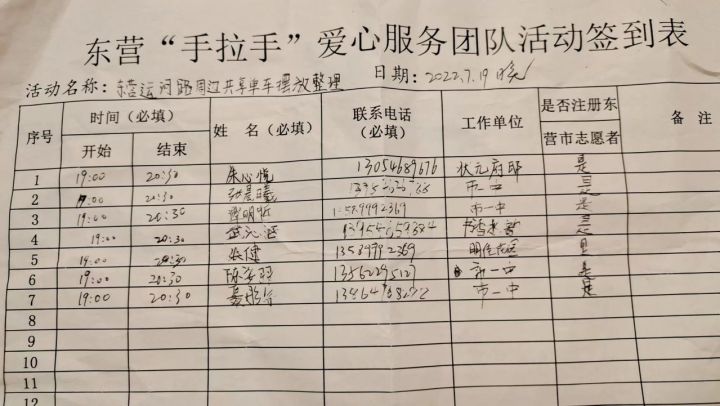 东营“手拉手”爱心服务团队活动签到表
活动名称：东营运河路周边共享单车摆放整理 日期：2022.7.19
序号 时间（必填） 姓 名（必填） 联系电话（必填） 工作单位 是否注册东营市志愿者 备 注
开始 结束
1 19:00 20:30 朱心悦 13054689676 状元府邸 是
2 19:00 20:30 市一中 是
3 19:00 20:30 市一中 是
4 19:00 20:30 是
5 19:00 20:30 张健 13589992369 是
6 19:00 20:30 市一中 是
7 19:00 20:30 市一中 是
8
9
10
11
12